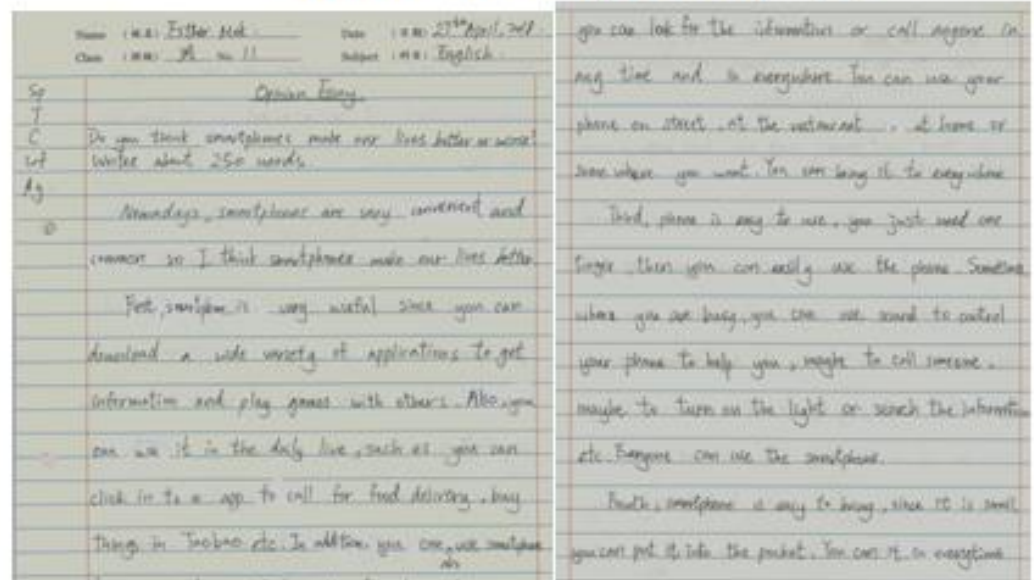 Name : Esther Mok
Date : 27th April, 2018
Class : No. 11
Subject : English
Opinion Essay
Sp
T
C
Wf
Ag
Do you think smartphones make our lives better or worse?
Write about 250 words.
Nowadays, smartphones are very convenient and
common so I think smartphones make our lives better.
First, smartphone is very useful since you can
download a wide variety of applications to get
information and play games with others. Also, you
can use it in the daily live, such as you can
click in to a app to call for food delivery, buy
things in Taobao etc. In addition, you can use smartphone
you can look for the information or call anyone in
any time and in everywhere. You can use your
phone on street, at the restaurant, at home or
some where you want. You can bring it to everywhere
Third, phone is easy to use, you just need one
finger, then you can easily use the phone. Sometimes
where you are busy, you can use sound to control
your phone to help you, maybe to call someone,
maybe to turn on the light or search the information
etc. Everyone can use the smartphone.
Fourth, smartphone is easy to bring, since it is small,
you can put it into the pocket. You can it in everytime